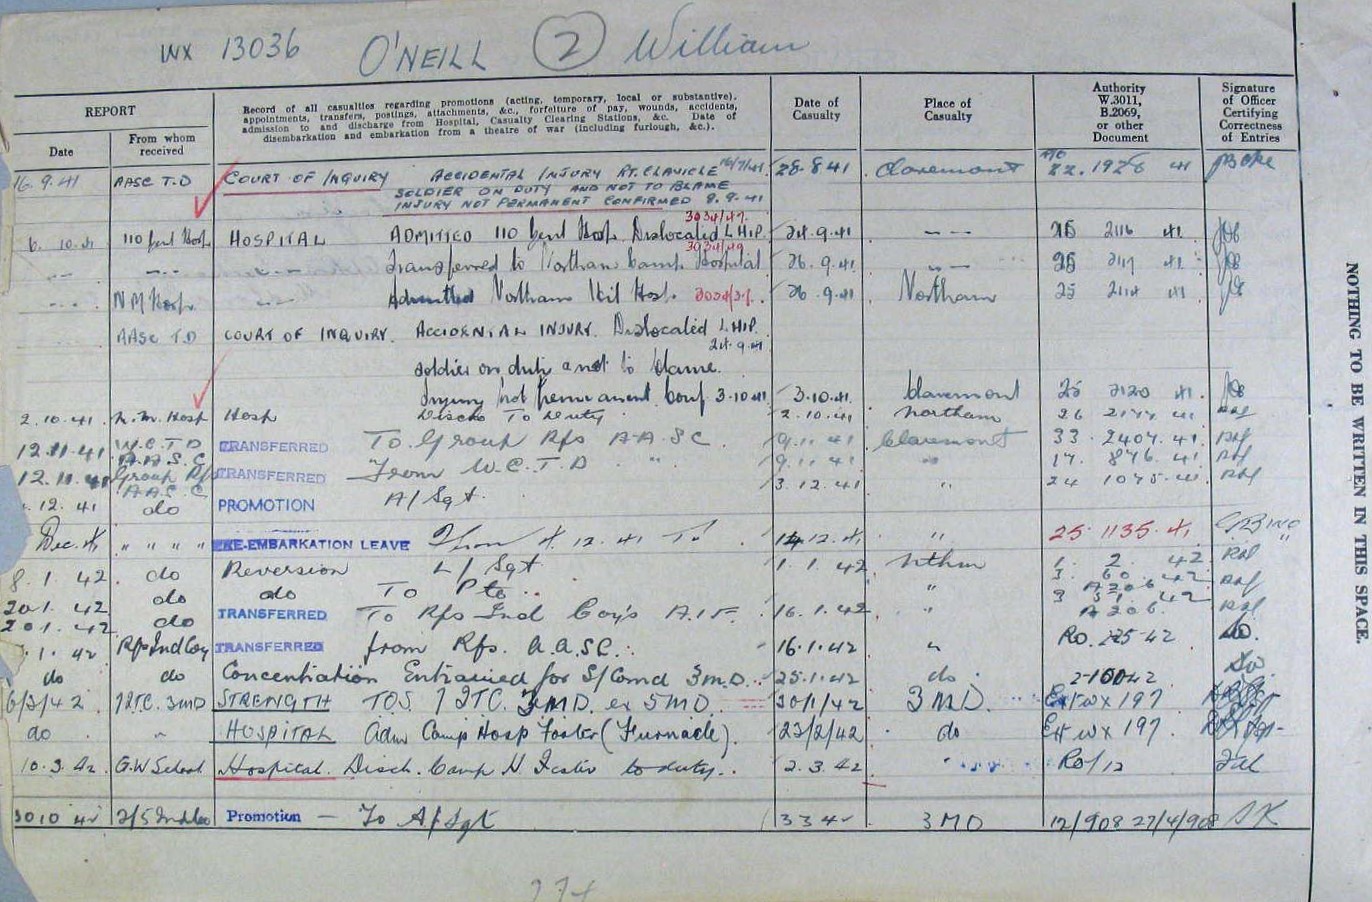 WX 13036 O'NEILL (2) William
REPORT
Date
From whom received
Record of all casualties regarding promotions (acting, temporary, local or substantive), appointments, transfers, postings, attachments, &c., forfeiture of pay, wounds, accidents, admission to and discharge from Hospital, Casualty Clearing Stations, &c. Date of disembarkation and embarkation from a theatre of war (including furlough, &c.).
Date of Casualty
Place of Casualty
Authority W.3011, B.2069, or other Document
Signature of Officer Certifying Correctness of Entries
16.9.41 AASC T.D COURT OF INQUIRY ACCIDENTAL INJURY RT. CLAVICLE 16/7/41 28.8.41 Claremont 22.1928 41
SOLDIER ON DUTY AND NOT TO BLAME
INJURY NOT PERMANENT CONFIRMED 9.9.41
3034/47.
6.10.41 110 Genl Hosp HOSPITAL ADMITTED 110 Genl Hosp. Dislocated L HIP. 24.9.41 -- -- 25 2116 41
3034/49
-- -- -- -- -- -- Transferred to Northam Camp Hospital 26.9.41 -- -- 25 2117 41
-- -- N M Hosp -- -- Admitted Northam Mil Hosp. 26.9.41 Northam 25 2118 41
AASC T.D COURT OF INQUIRY. ACCIDENTAL INJURY. Dislocated L HIP.
24.9.41
soldier on duty and not to blame.
Injury not permanent Conf 3.10.41 3.10.41. Claremont 25 2120 41
2.10.41 N.M. Hosp Hosp Disch To Duty 2.10.41 Northam 26 2177 41
12.11.41 W.C.T.D A.A.S.C TRANSFERRED To Group Rfs A.A.S.C. 9.11.41 Claremont 33.2407.41
12.11.41 Group Rfs A.A.S.C TRANSFERRED From W.C.T.D " 9.11.41 " 17.876.41
.12.41 do PROMOTION A/Sgt. 3.12.41 " 24 1075.41
Dec. 41 " " " " PRE-EMBARKATION LEAVE From 4.12.41 To 14.12.41 " 25.1135.41
8.1.42 do Reversion L/Sgt 1.1.42 Nthm 1. 2. 42
20.1.42 do do To Pte. " 3. 60. 42 A206
20.1.42 do TRANSFERRED To Rfs Ind Coy's A.I.F. 16.1.42 " 3 42 A206.
.1.42 Rfs Ind Coy TRANSFERRED from Rfs. A.A.S.C. 16.1.42 " Ro. 25-42
do do Concentration Entrained for S/Comd 3 M.D. 25.1.42 do 42
6/3/42 7 ITC. 3MD STRENGTH TOS. 7 ITC. 3 M.D. ex 5 M D 30/1/42 3 M D. Ex WX 197
do " HOSPITAL Adm Camp Hosp Foster (Furnacle). 23/2/42 do Ex WX 197
10.3.42 G.W School Hospital. Disch. Camp H. Foster to duty. 2.3.42 " Ro/12
3010 42 2/5 Ind Coo Promotion — To A/Sgt 3 3 42 3 MD 12/908 27/4/908 SK
NOTHING TO BE WRITTEN IN THIS SPACE.
274